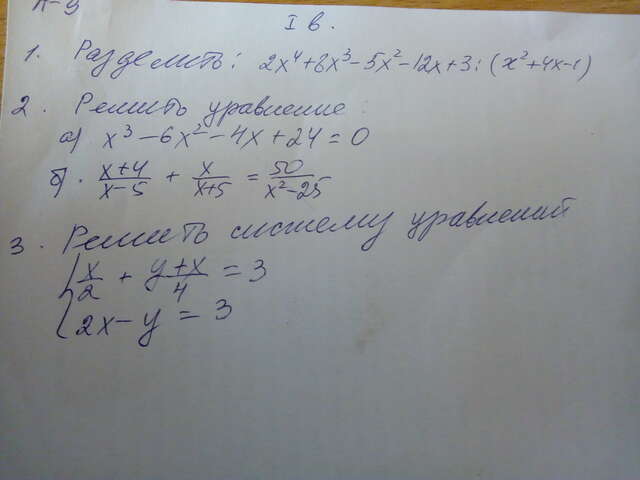 К-9
I в.
1. Разделить: 2x⁴+8x³-5x²-12x+3:(x²+4x-1)
2. Решить уравнение:
а) x³-6x²-4x+24=0
б). (x+4)/(x-5) + x/(x+5) = 50/(x²-25)
3. Решить систему уравнений
{ x/2 + (y+x)/4 = 3
{ 2x-y = 3